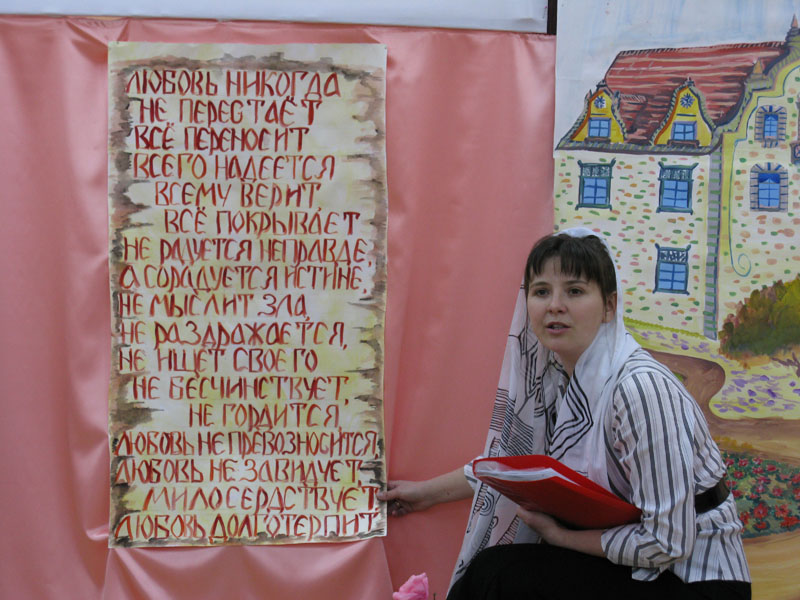 ЛЮБОВЬ НИКОГДА
НЕ ПЕРЕСТАЁТ
ВСЁ ПЕРЕНОСИТ
ВСЕГО НАДЕЕТСЯ
ВСЕМУ ВЕРИТ,
ВСЁ ПОКРЫВАЕТ
НЕ РАДУЕТСЯ НЕПРАВДЕ,
А СОРАДУЕТСЯ ИСТИНЕ;
НЕ МЫСЛИТ ЗЛА,
НЕ РАЗДРАЖАЕТСЯ,
НЕ ИЩЕТ СВОЕГО
НЕ БЕСЧИНСТВУЕТ,
НЕ ГОРДИТСЯ
ЛЮБОВЬ НЕ ПРЕВОЗНОСИТСЯ,
ЛЮБОВЬ НЕ ЗАВИДУЕТ,
МИЛОСЕРДСТВУЕТ
ЛЮБОВЬ ДОЛГОТЕРПИТ